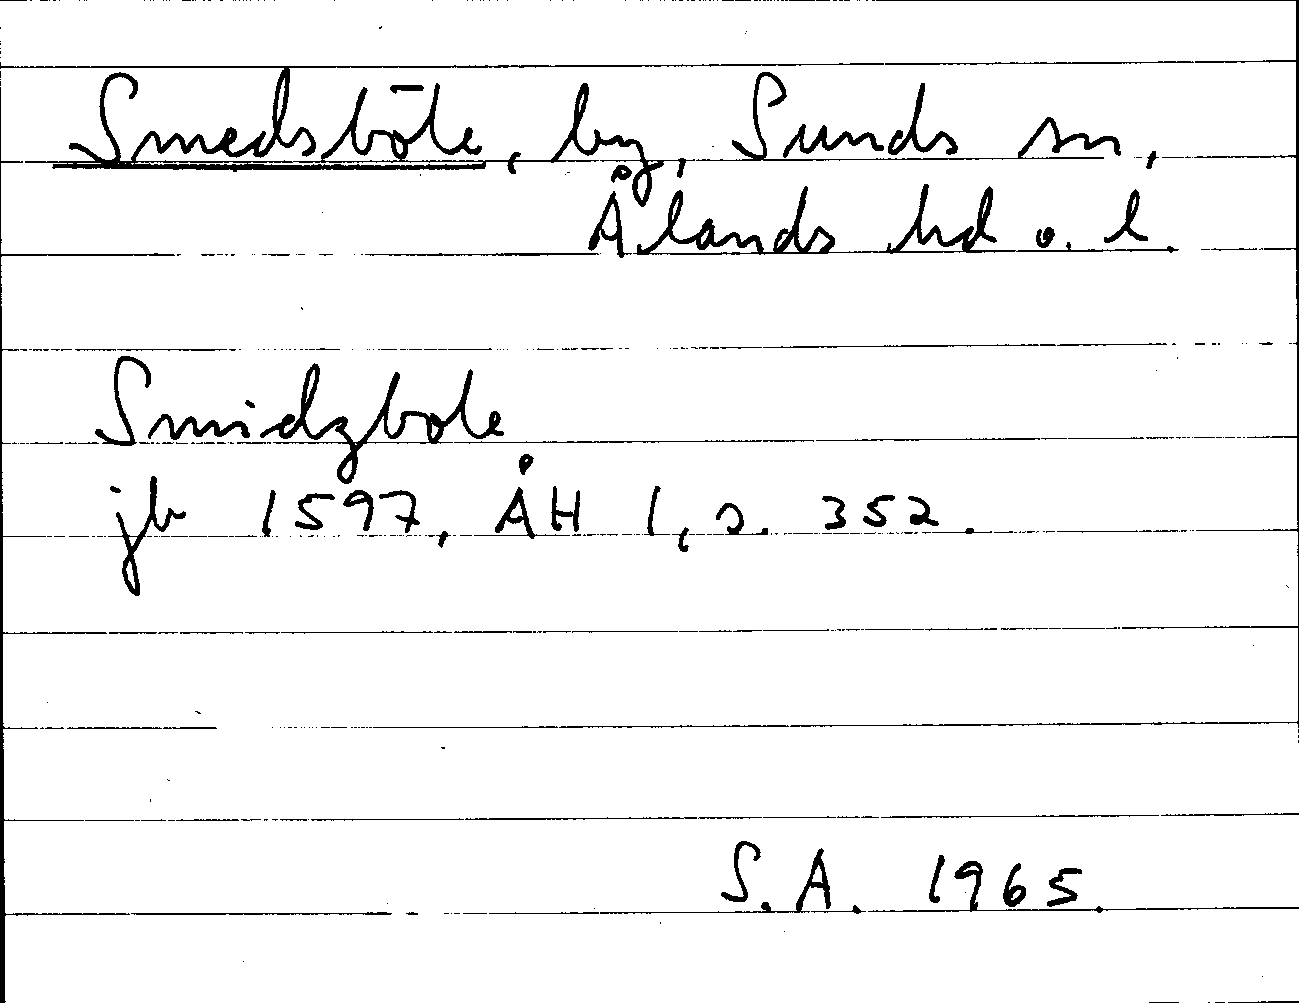 Smedsböle, by, Sunds sn,
Ålands hd o. l.
Smidzbole
jb 1597, ÅH 1, s. 352.
S. A. 1965.